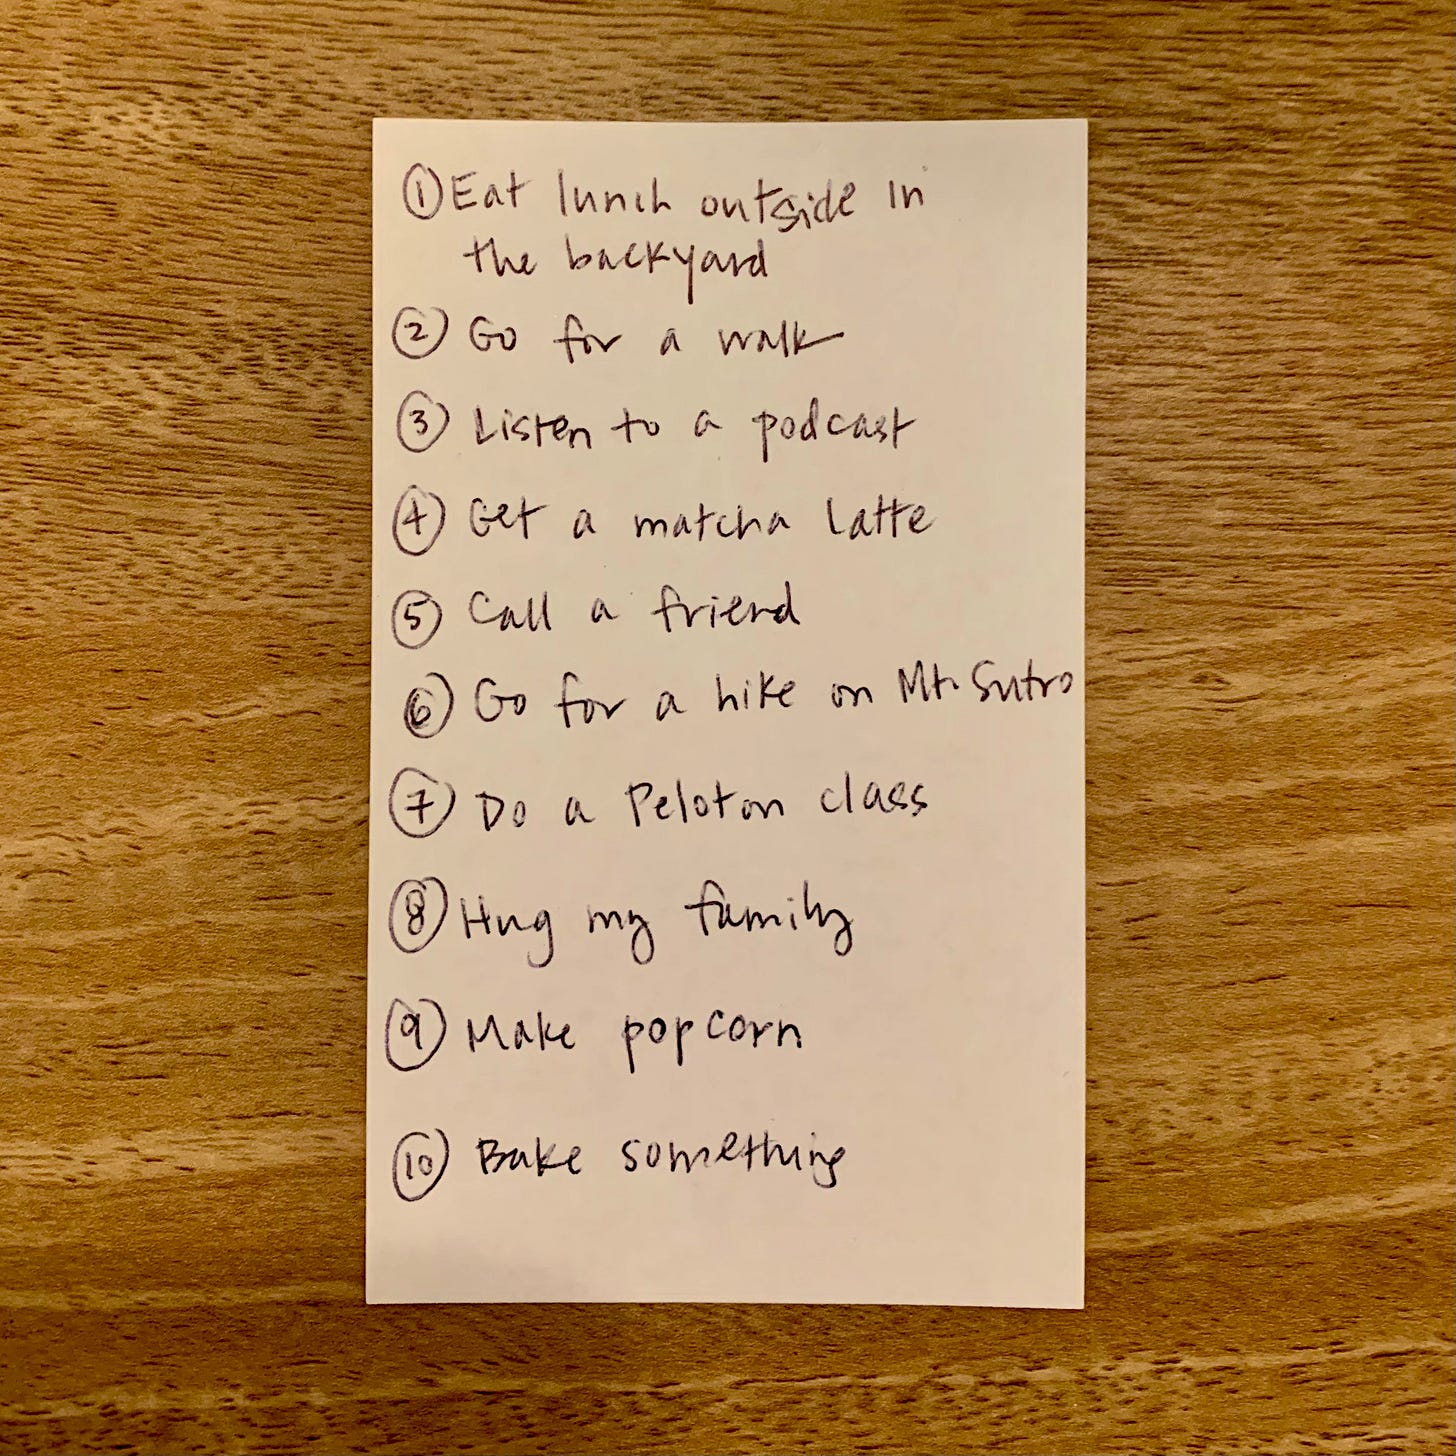 ① Eat lunch outside in
the backyard
② Go for a walk
③ Listen to a podcast
④ Get a matcha latte
⑤ Call a friend
⑥ Go for a hike on Mt. Sutro
⑦ Do a Peloton class
⑧ Hug my family
⑨ Make popcorn
⑩ Bake something